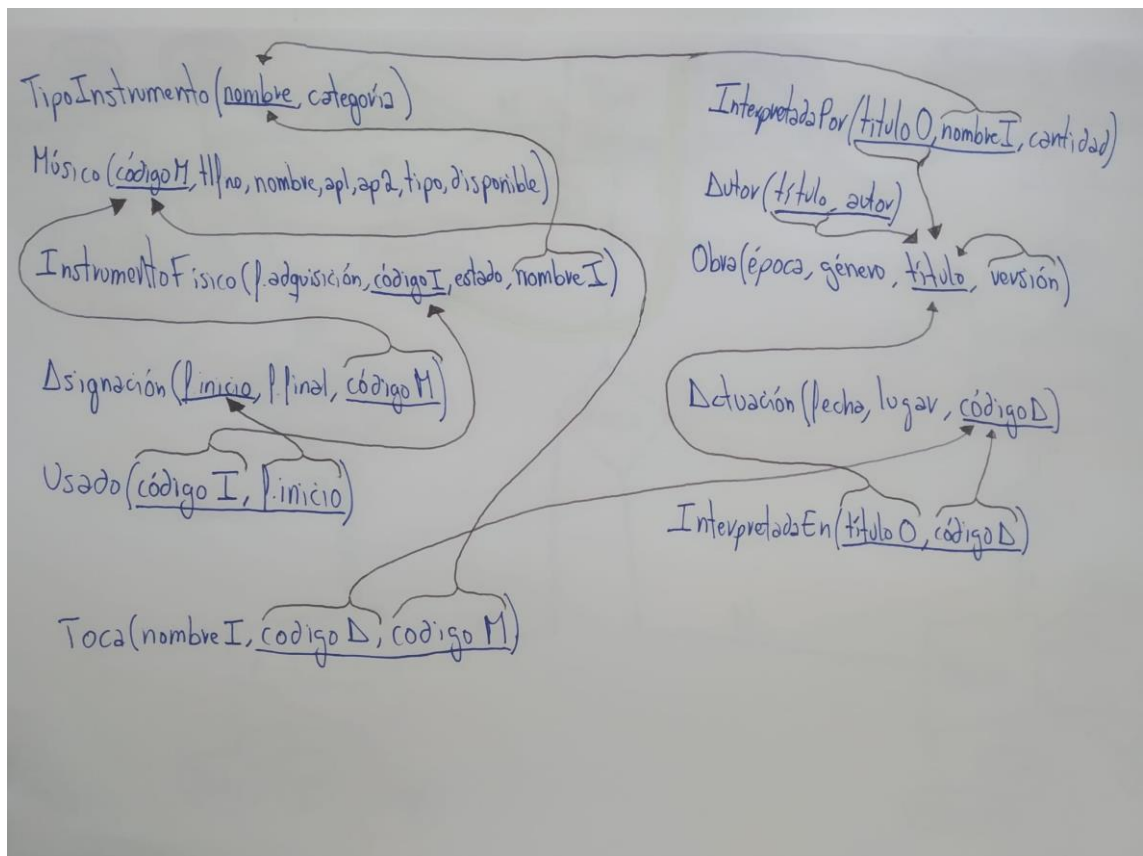 TipoInstrumento(nombre, categoría)
Músico(códigoM, tlfno, nombre, ap1, ap2, tipo, disponible)
InstrumentoFisico(f.adquisición, códigoI, estado, nombreI)
Asignación(f.inicio, f.final, códigoM)
Usado(código I, f.inicio)
Toca(nombre I, codigo A, codigo M)
InterpretadaPor(titulo O, nombreI, cantidad)
Autor(título, autor)
Obra(época, género, título, versión)
Actuación(fecha, lugar, códigoA)
InterpretadaEn(título O, códigoA)